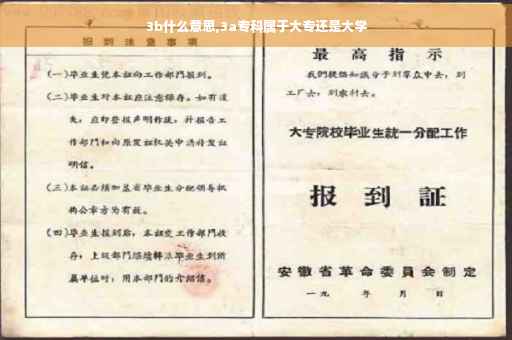 3b什么意思,3a专科属于大专还是大学
报到注意事项
(一)毕业生凭本证向工作部门报到。
(二)毕业生对本证应注意保存。如有遗
失,应即登报声明作废,并报告工
作部门和向原发证机关申请补发证
明信。
(三)本证必须加盖省毕业生分配领导机
构公章方为有效。
(四)毕业生报到后,本证交工作部门收
存;上级部门继续转派毕业生到所
属单位时,用本部门的介绍信。
最高指示
我们提倡知识分子到群众中去,到
工厂去,到农村去。
大专院校毕业生統一分配工作
报到証
安徽省革命委員会制定
一九 年 月 日